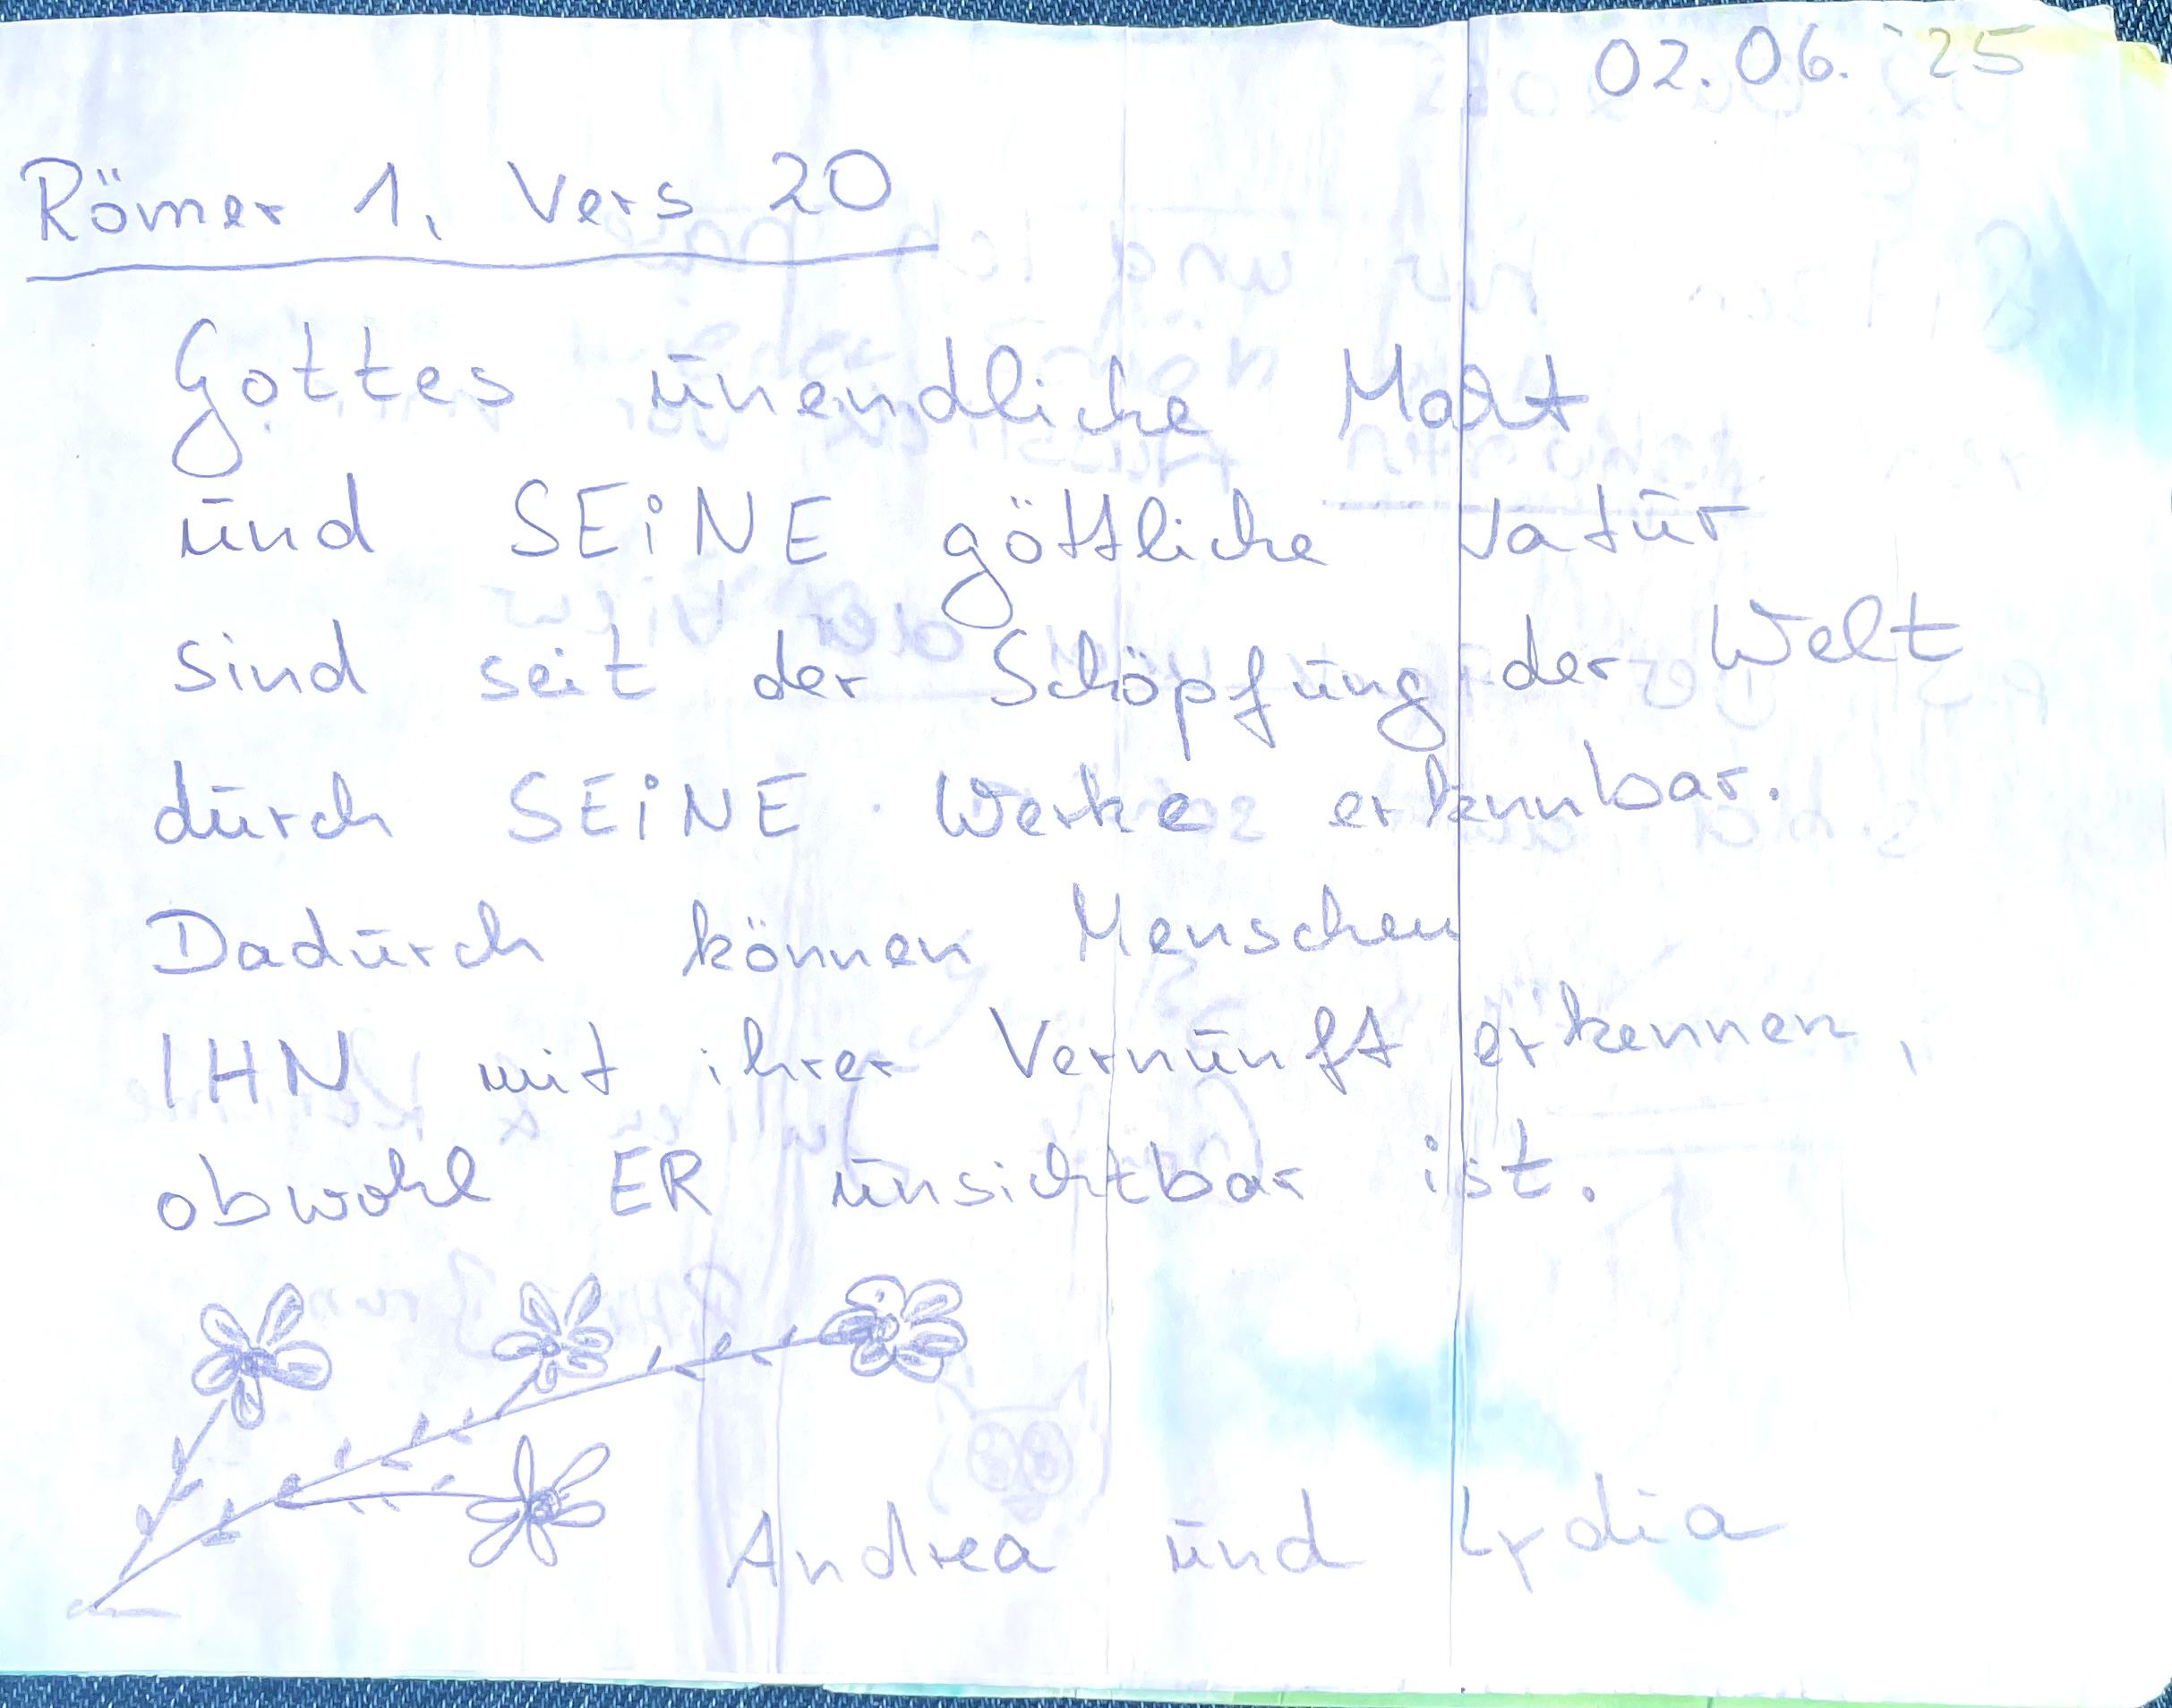 02.06.'25
Römer 1, Vers 20
Gottes unendliche Macht
und SEiNE göttliche Natur
sind seit der Schöpfung der Welt
durch SEiNE Werke erkennbar.
Dadurch können Menschen
IHN mit ihrer Vernunft erkennen,
obwohl ER unsichtbar ist.
Andrea und Lydia